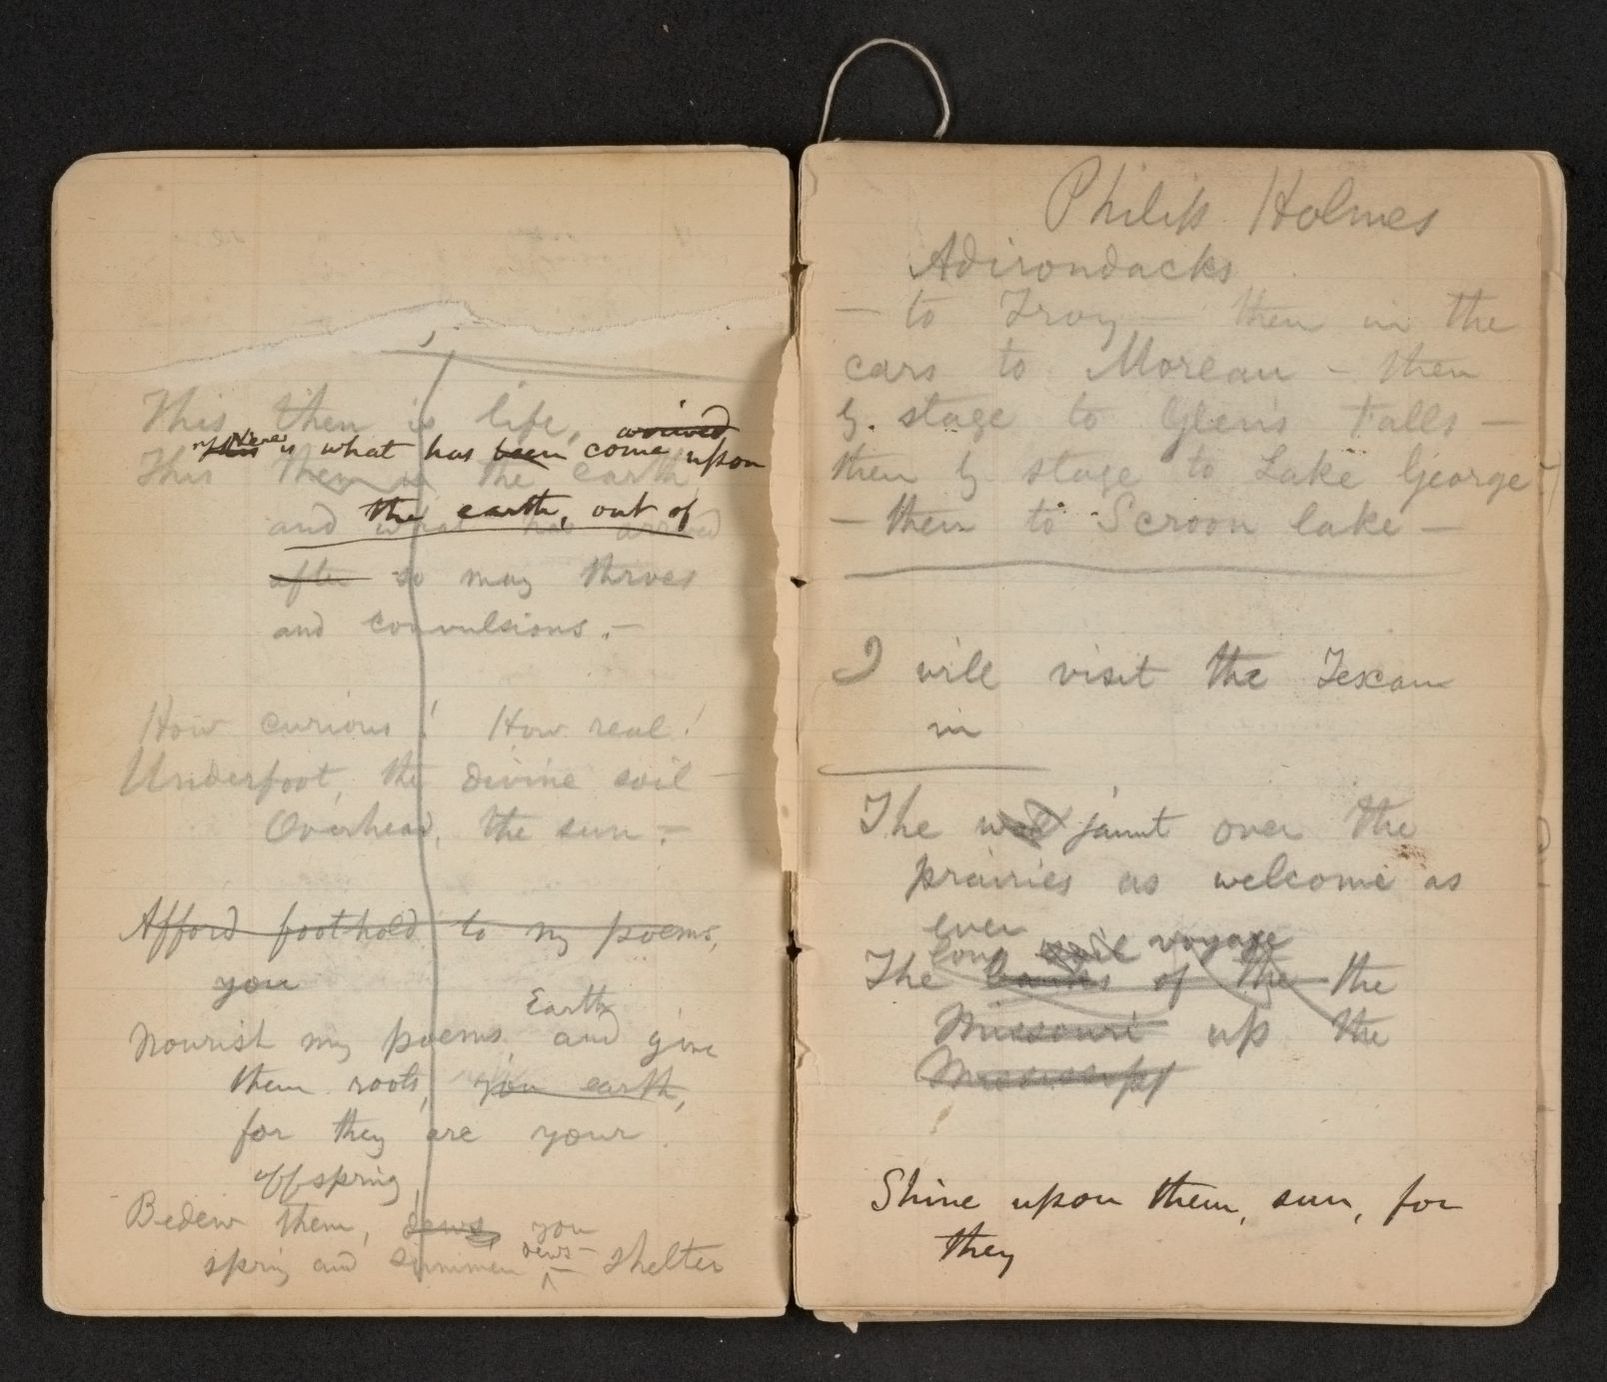 This then is life,
arrived
this Here is what has been come upon
This then is the earth
the earth, out of
and what has arrived
after so many throes
and convulsions.—
How curious! How real!
Underfoot, the divine soil—
Overhead, the sun.—
Afford foothold to my poems,
you
Earth
Nourish my poems, and give
them roots, you earth,
for they are your
offspring,
Bedew them, dews, you
dews—
spring and summer — shelter
Philip Holmes
Adirondacks
— to Troy — then in the
cars to Moreau — then
by stage to Glen's Falls —
then by stage to Lake George
— then to Scroon lake —
I will visit the Texan
in
The jaunt over the
prairies as welcome as
ever
long sail voyage
The banks of the the
Missouri up the
Mississippi
Shine upon them, sun, for
they